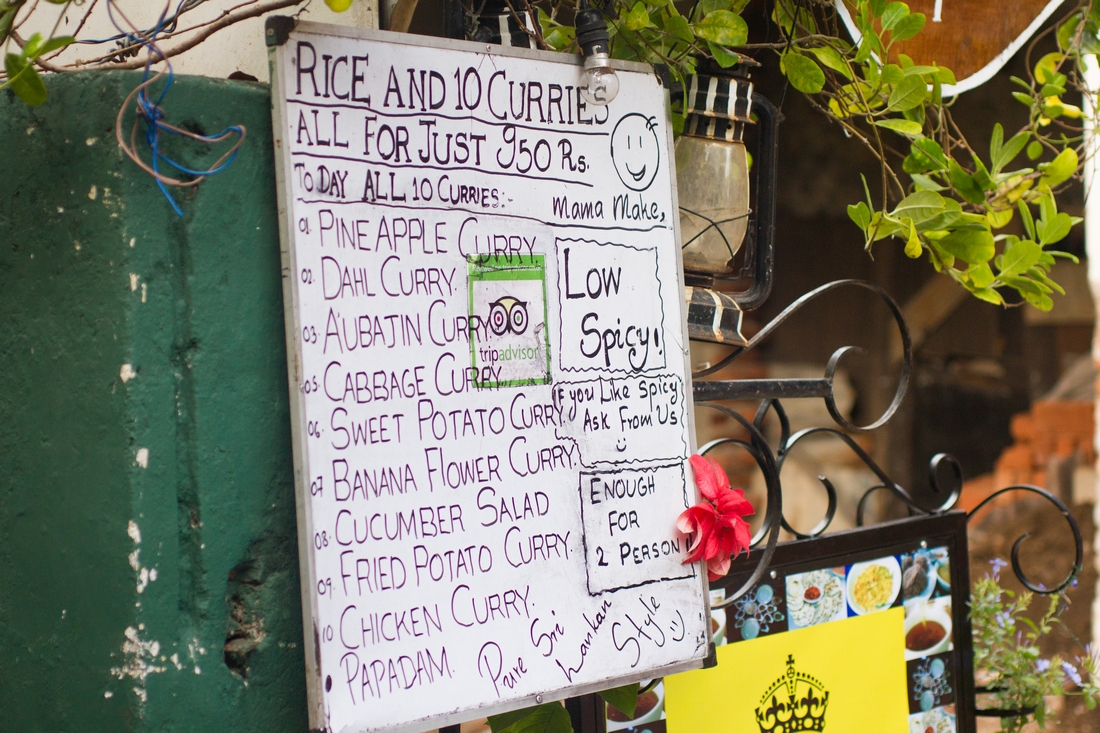 RICE AND 10 CURRIES
ALL FOR JUST 950 Rs.
TO DAY ALL 10 CURRIES:-
Mama Make,
01. PINEAPPLE CURRY.
02. DAHL CURRY.
03. A'UBATJIN CURRY
05. CABBAGE CURRY
06. SWEET POTATO CURRY.
07 BANANA FLOWER CURRY.
08. CUCUMBER SALAD
09. FRIED POTATO CURRY.
10 CHICKEN CURRY.
PAPADAM.
tripadvisor
LOW
SPicy!
If you Like Spicy
Ask From Us
ENOUGH
FOR
2 PERSON!!
Pure Sri
Lankan
Style